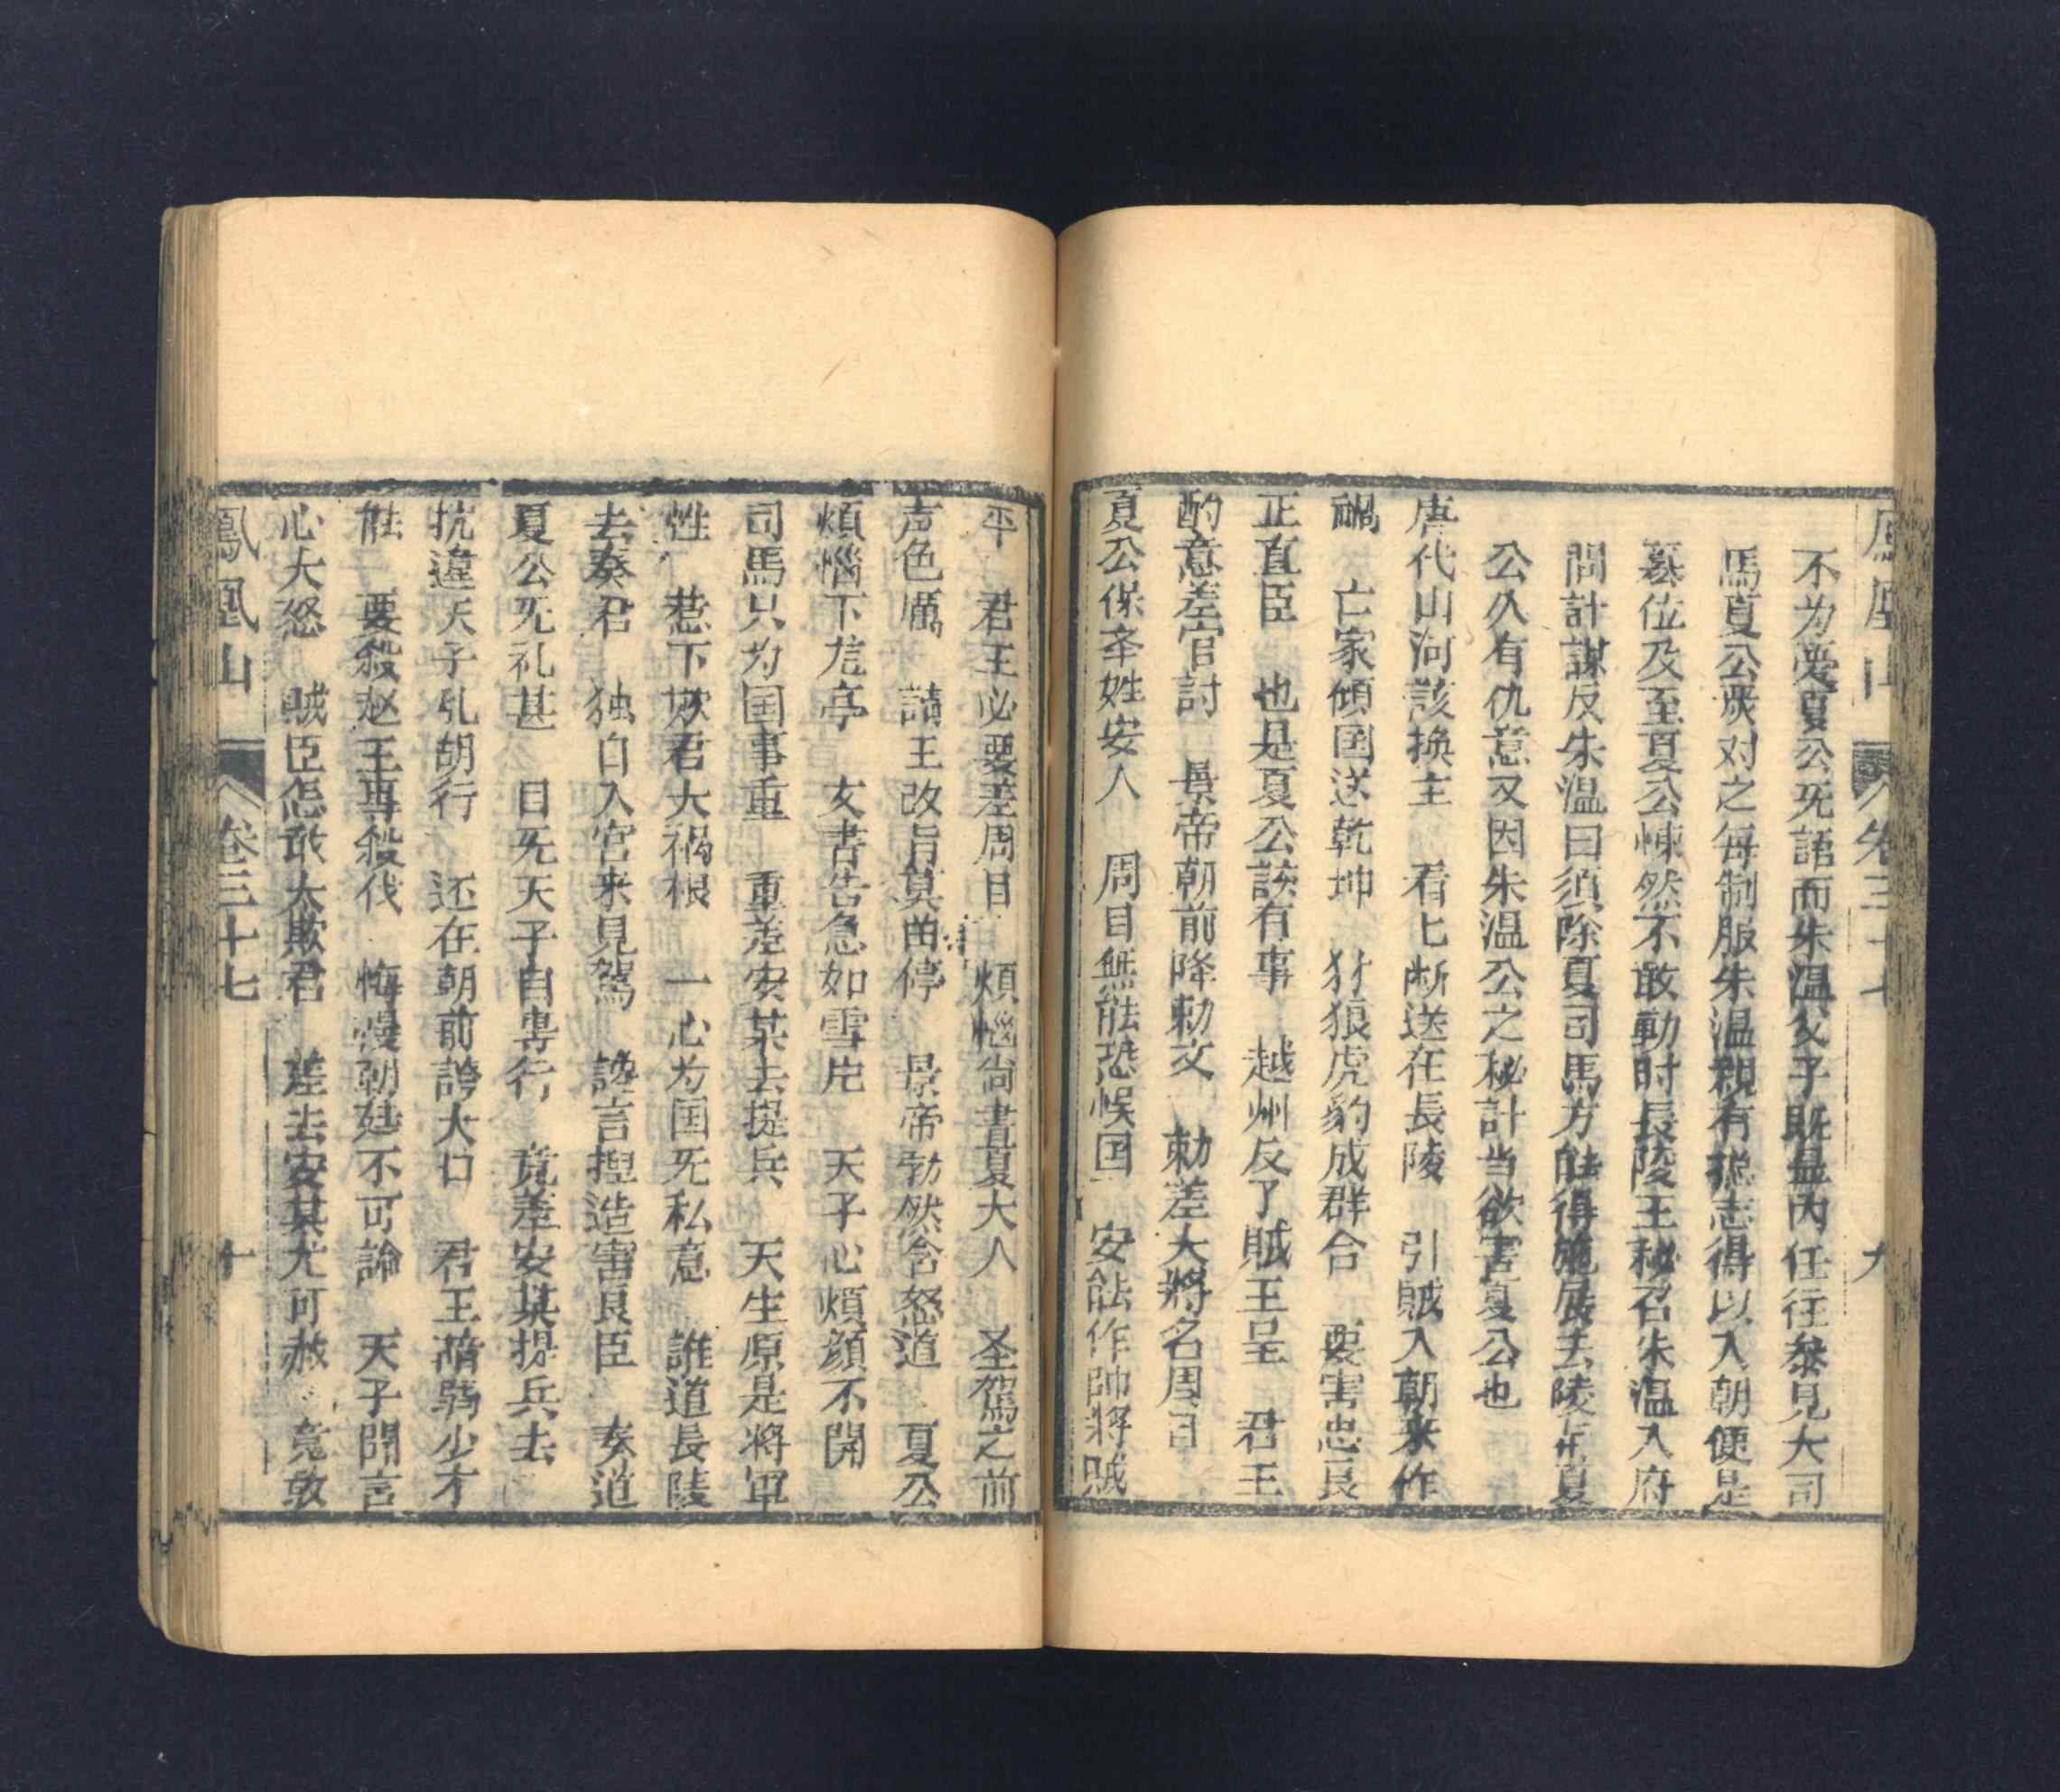 鳳凰山 卷三十七 九
不为受夏公旡語而朱溫父子既益內任往参見大司
馬夏公淡对之每制服朱溫親有孤志得以入朝便是
篡位及至夏公悚然不敢動时長陵王秘召朱温入府
問計謀反朱温曰須除夏司馬方能得施展去陵王夏
公久有仇意又因朱温公之秘計当欲害夏公也
唐代山河該換主 看七断送在長陵 引賊入朝来作
禍 亡家傾囯送乾坤 豺狼虎豹成群合 要害忠良
正直臣 也是夏公該有事 越州反了賊王呈 君王
酌意差官討 景帝朝前降勅文 勅差大將名周目
夏公保夲姓安人 周目無能恐悞囯 安能作帥將賊
平 君王必要差周目 煩惱尚書夏大人 圣駕之前
声色厲 請王改旨莫曲停 景帝勃然含怒道 夏公
煩惱下尨亭 文書告急如雪片 天子心煩顔不開
司馬只为囯事重 重差安某去提兵 天生原是將軍
性 惹下欺君大禍根 一心为囯旡私意 誰道長陵
去奏君 独自入宮来見駕 讒言揑造害良臣 奏道
夏公旡礼甚 目旡天子自専行 竟差安某提兵去
抗違天子乱胡行 还在朝前誇大口 君王濡弱少才
能 要殺赵王專殺伐 悔慢朝廷不可論 天子開言
心大怒 賊臣怎敢大欺君 差去安某尤可赦 竟敢
鳳凰山 卷三十七 十